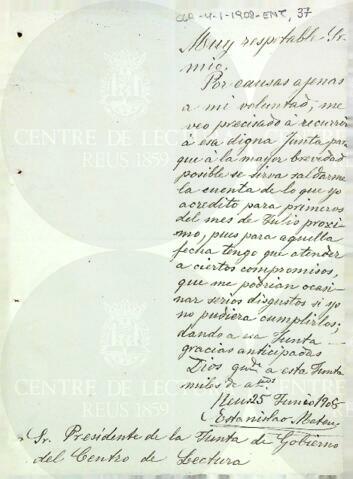 CLR-4-1-1908-ENT, 37
Muy respetable Sr.
mio,
Por causas ajenas
a mi voluntad, me
veo precisado a recurrir
á esa digna Junta pa
que á la mayor brevedad
posible se sirva saldarme
la cuenta de lo que yo
acredito para primeros
del mes de Julio proxi
mo, pues para aquella
fecha tengo que atender
a ciertos compromisos,
que me podrian ocasi
nar serios disgustos si yo
no pudiera cumplirlos;
dando a esa Junta
gracias anticipadas
Dios que a esta Junta
miles de a.os
Reus 25 Junio 1908
Estanislao Mateu
Sr. Presidente de la Junta de Gobierno
del Centro de Lectura
CENTRE DE LECTURA
REUS 1859
CENTRE DE LECTURA
REUS 1859